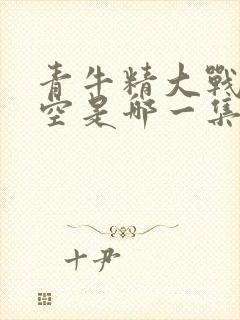 青牛精大戰
空是哪一集
十尹